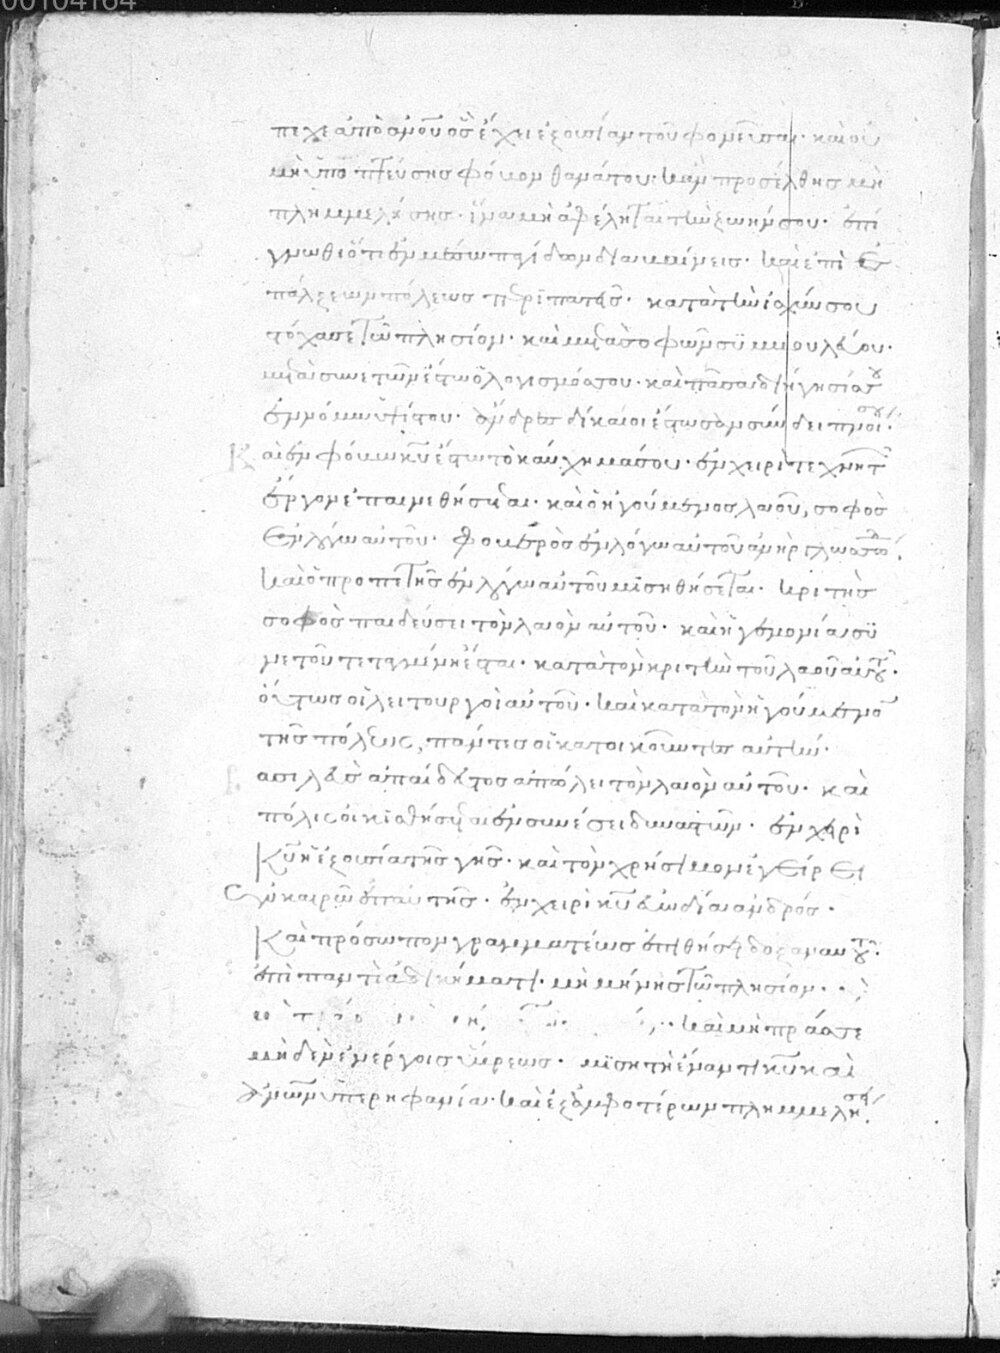 00104164
πεχε ἀπὸ ἀνοῦ ὃς ἔχει ἐξουσίαν τοῦ φονεῦσαι· καὶ οὐ
μὴ ὑποπτεύσης φόβον θανάτου· κἂν προσέλθης μὴ
πλημμελήσης· ἵνα μὴ ἀφέληται τὴν ζωήν σου· ἐπί
γνωθι ὅτι ἐν μέσω παγίδων διαβαίνεις· καὶ ἐπὶ
πάλξεων πόλεως περιπατεῖς· κατὰ τὴν ἰσχύν σου
στόχασαι τῶ πλησίον· καὶ μετὰ σοφῶν συμβουλεύου·
μετὰ συνετῶν ἔστω ὁ λογισμός σου· καὶ πᾶσα διήγησίς σου
ἐν νόμω ὑψίστου· ἄνδρες δίκαιοι ἔστωσαν σύνδειπνοί σου·
Καὶ ἐν φόβω κυ ἔστω τὸ καύχημά σου· ἐν χειρὶ τεχνιτῶν
ἔργον ἐπαινεθήσεται· καὶ ὁ ἡγούμενος λαοῦ, σοφὸς
ἐν λόγω αὐτοῦ· φοβερὸς ἐν λόγω αὐτοῦ ἀνὴρ γλωσσώδης·
καὶ ὁ προπετὴς ἐν λόγω αὐτοῦ μισηθήσεται· κριτὴς
σοφὸς παιδεύσει τὸν λαὸν αὐτοῦ· καὶ ἡγεμονία συ
νετοῦ τεταγμένη ἔσται· κατὰ τὸν κριτὴν τοῦ λαοῦ αὐτοῦ·
οὕτως οἱ λειτουργοὶ αὐτοῦ· καὶ κατὰ τὸν ἡγούμενον
τῆς πόλεως, πάντες οἱ κατοικοῦντες αὐτήν·
ασιλεὺς ἀπαίδευτος ἀπολεῖ τὸν λαὸν αὐτοῦ· καὶ
πόλις οἰκισθήσεται ἐν συνέσει δυναστῶν· ἐν χειρὶ
Κυ ἡ ἐξουσία τῆς γῆς· καὶ τὸν χρήσιμον ἐγείρει
εἰς καιρὸν ἐπ' αὐτῆς· ἐν χειρὶ κυ εὐοδία ἀνδρός·
Καὶ προσώπον γραμματέως ἐπιθήσει δόξαν αὐτοῦ·
ἐπὶ παντὶ ἀδικήματι μὴ μηνίσης τῶ πλησίον·
καὶ μὴ πράσσε
μηδὲν ἐν ἔργοις ὕβρεως· μισητὴ ἔναντι κυ καὶ
ἀνων ὑπερηφανία· καὶ ἐξ ἀμφοτέρων πλημμελήσει